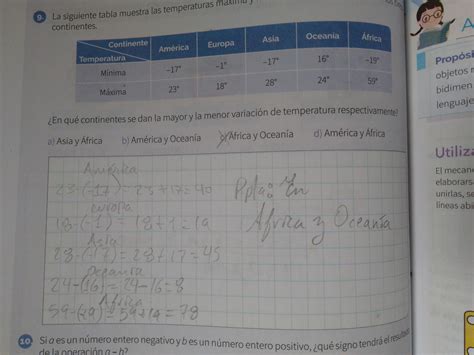 9. La siguiente tabla muestra las temperaturas máxima y
continentes.
Continente América Europa Asia Oceanía África
Temperatura
Mínima –17° –1° –17° 16° –19°
Máxima 23° 18° 28° 24° 59°
¿En qué continentes se dan la mayor y la menor variación de temperatura respectivamente?
a) Asia y África b) América y Oceanía c) África y Oceanía d) América y África
América
23-(-17) = 23+17=40
Europa
18-(-1) = 18+1=19
Asia
28-(-17) = 28+17=45
Oceanía
24-(16) = 24-16=8
África
59-(-19) = 59+19=78
Rpta: En
África y Oceanía
10. Si a es un número entero negativo y b es un número entero positivo, ¿qué signo tendrá el resultado
de la operación a – b?
A
Propósi
objetos
bidimen
lenguaje
Utiliza
El mecan
elaborars
unirlas, se
líneas abi